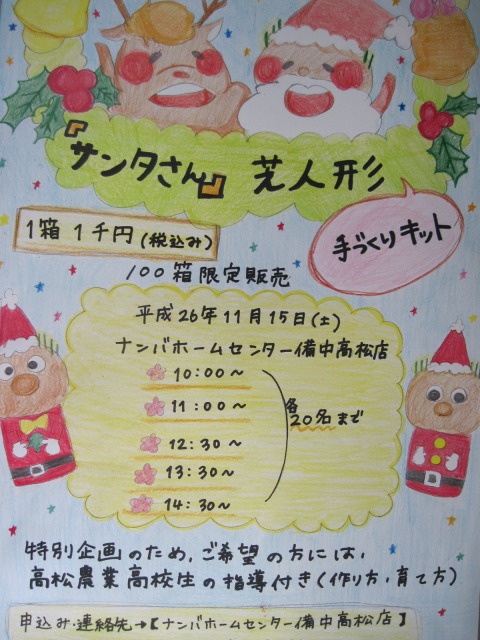 『サンタさん』芝人形
手づくりキット
1箱 1千円(税込み)
100箱限定販売
平成26年11月15日(土)
ナンバホームセンター備中高松店
10:00～
11:00～
12:30～
13:30～
14:30～
各20名まで
特別企画のため、ご希望の方には、
高松農業高校生の指導付き(作り方・育て方)
申込み・連絡先→【ナンバホームセンター備中高松店】